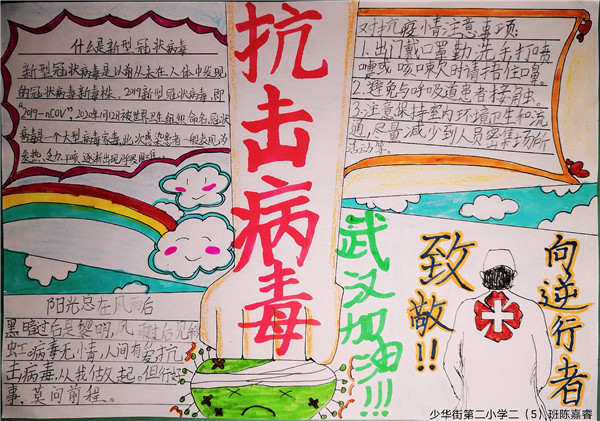 什么是新型冠状病毒
新型冠状病毒是以前从未在人体中发现
的冠状病毒新毒株。2019新型冠状病毒,即
"2019-nCOV",2020年1月12日被世界卫生组织命名。冠状
病毒是一个大型病毒家族,此次感染患者一般表现为
发热、乏力、干咳、逐渐出现呼吸困难。
抗击病毒
对抗疫情注意事项:
1.出门戴口罩,勤洗手,打喷
嚏或咳嗽时请捂住口鼻。
2.避免与呼吸道患者接触。
3.注意保持室内环境卫生和流
通,尽量减少到人员密集场所
活动等。
阳光总在风雨后
黑暗过后是黎明,风雨过后见彩
虹。病毒无情,人间有爱,抗
击病毒,从我做起。但行好
事,莫问前程。
武汉加油!!!
致敬!!
向逆行者
少华街第二小学二(5)班陈嘉睿